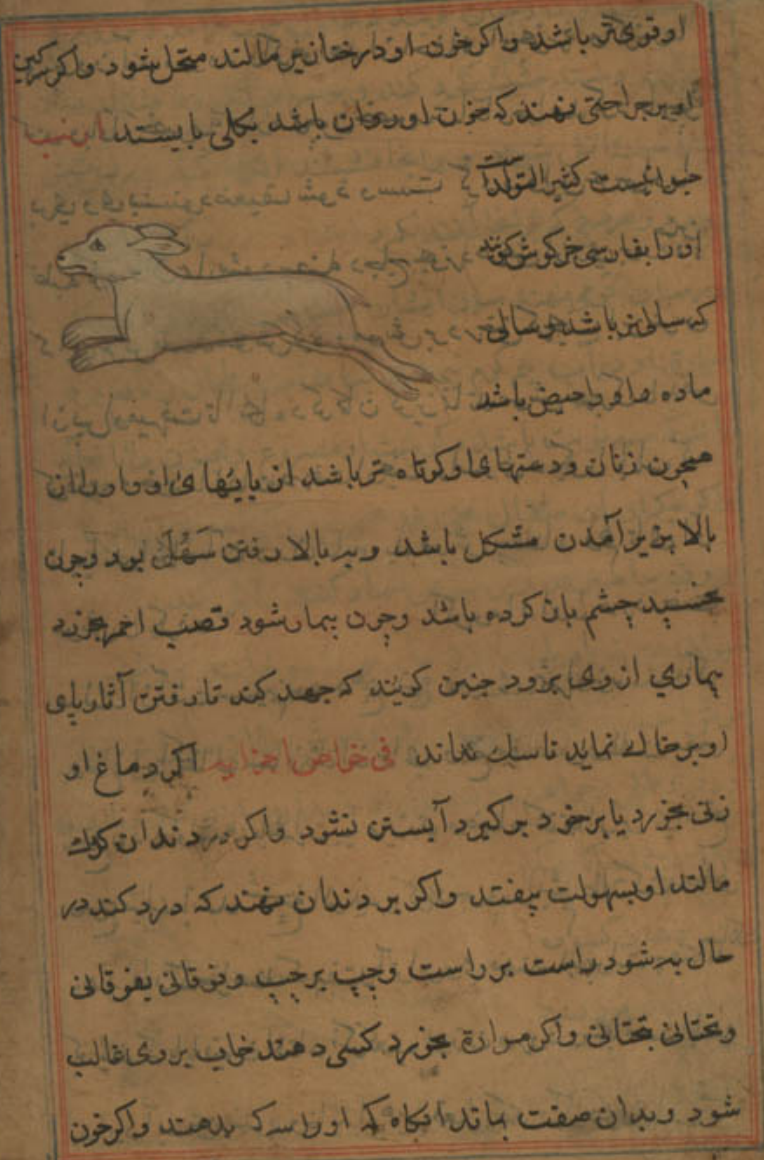 او قوی تر باشد واکر خون او درختان نیز مالند متحل شود واکر سرکین
او بر جراحتی نهند که خون او روان باشد بکلی بایستد ارنب
حیوانیست کثیر التولد است
اورا بفارسی خرکوش کویند
که سالی نر باشد و سالی
ماده و او را حیض باشد
همچون زنان و دستهای او کوتاه تر باشد از پایهای او و او را از
بالا بزیر آمدن مشکل باشد و ببالا رفتن سَهْل بود وچون
بخسپد چشم باز کرده باشد وچون بیمار شود قصب اخضر بخورد
بیماری از وی برود چنین کویند که جهد کند تا رفتن آثار پای
او بر خاک نماند تا سک نداند فی خواص اجزایه اکر دماغ او
زنی بخورد یا بر خود برکیرد آبستن نشود واکر در دندان کودک
مالند او بسهولت بیفتد واکر بر دندان نهند که درد کند در
حال به شود راست بر راست وچپ بر چپ وفوقانی بفوقانی
وتحتانی بتحتانی واکر مرارة بخورد کسی دهند خواب بر وی غالب
شود وبدان صفت بماند آنکاه که اورا سرکه بدهند واکر خون